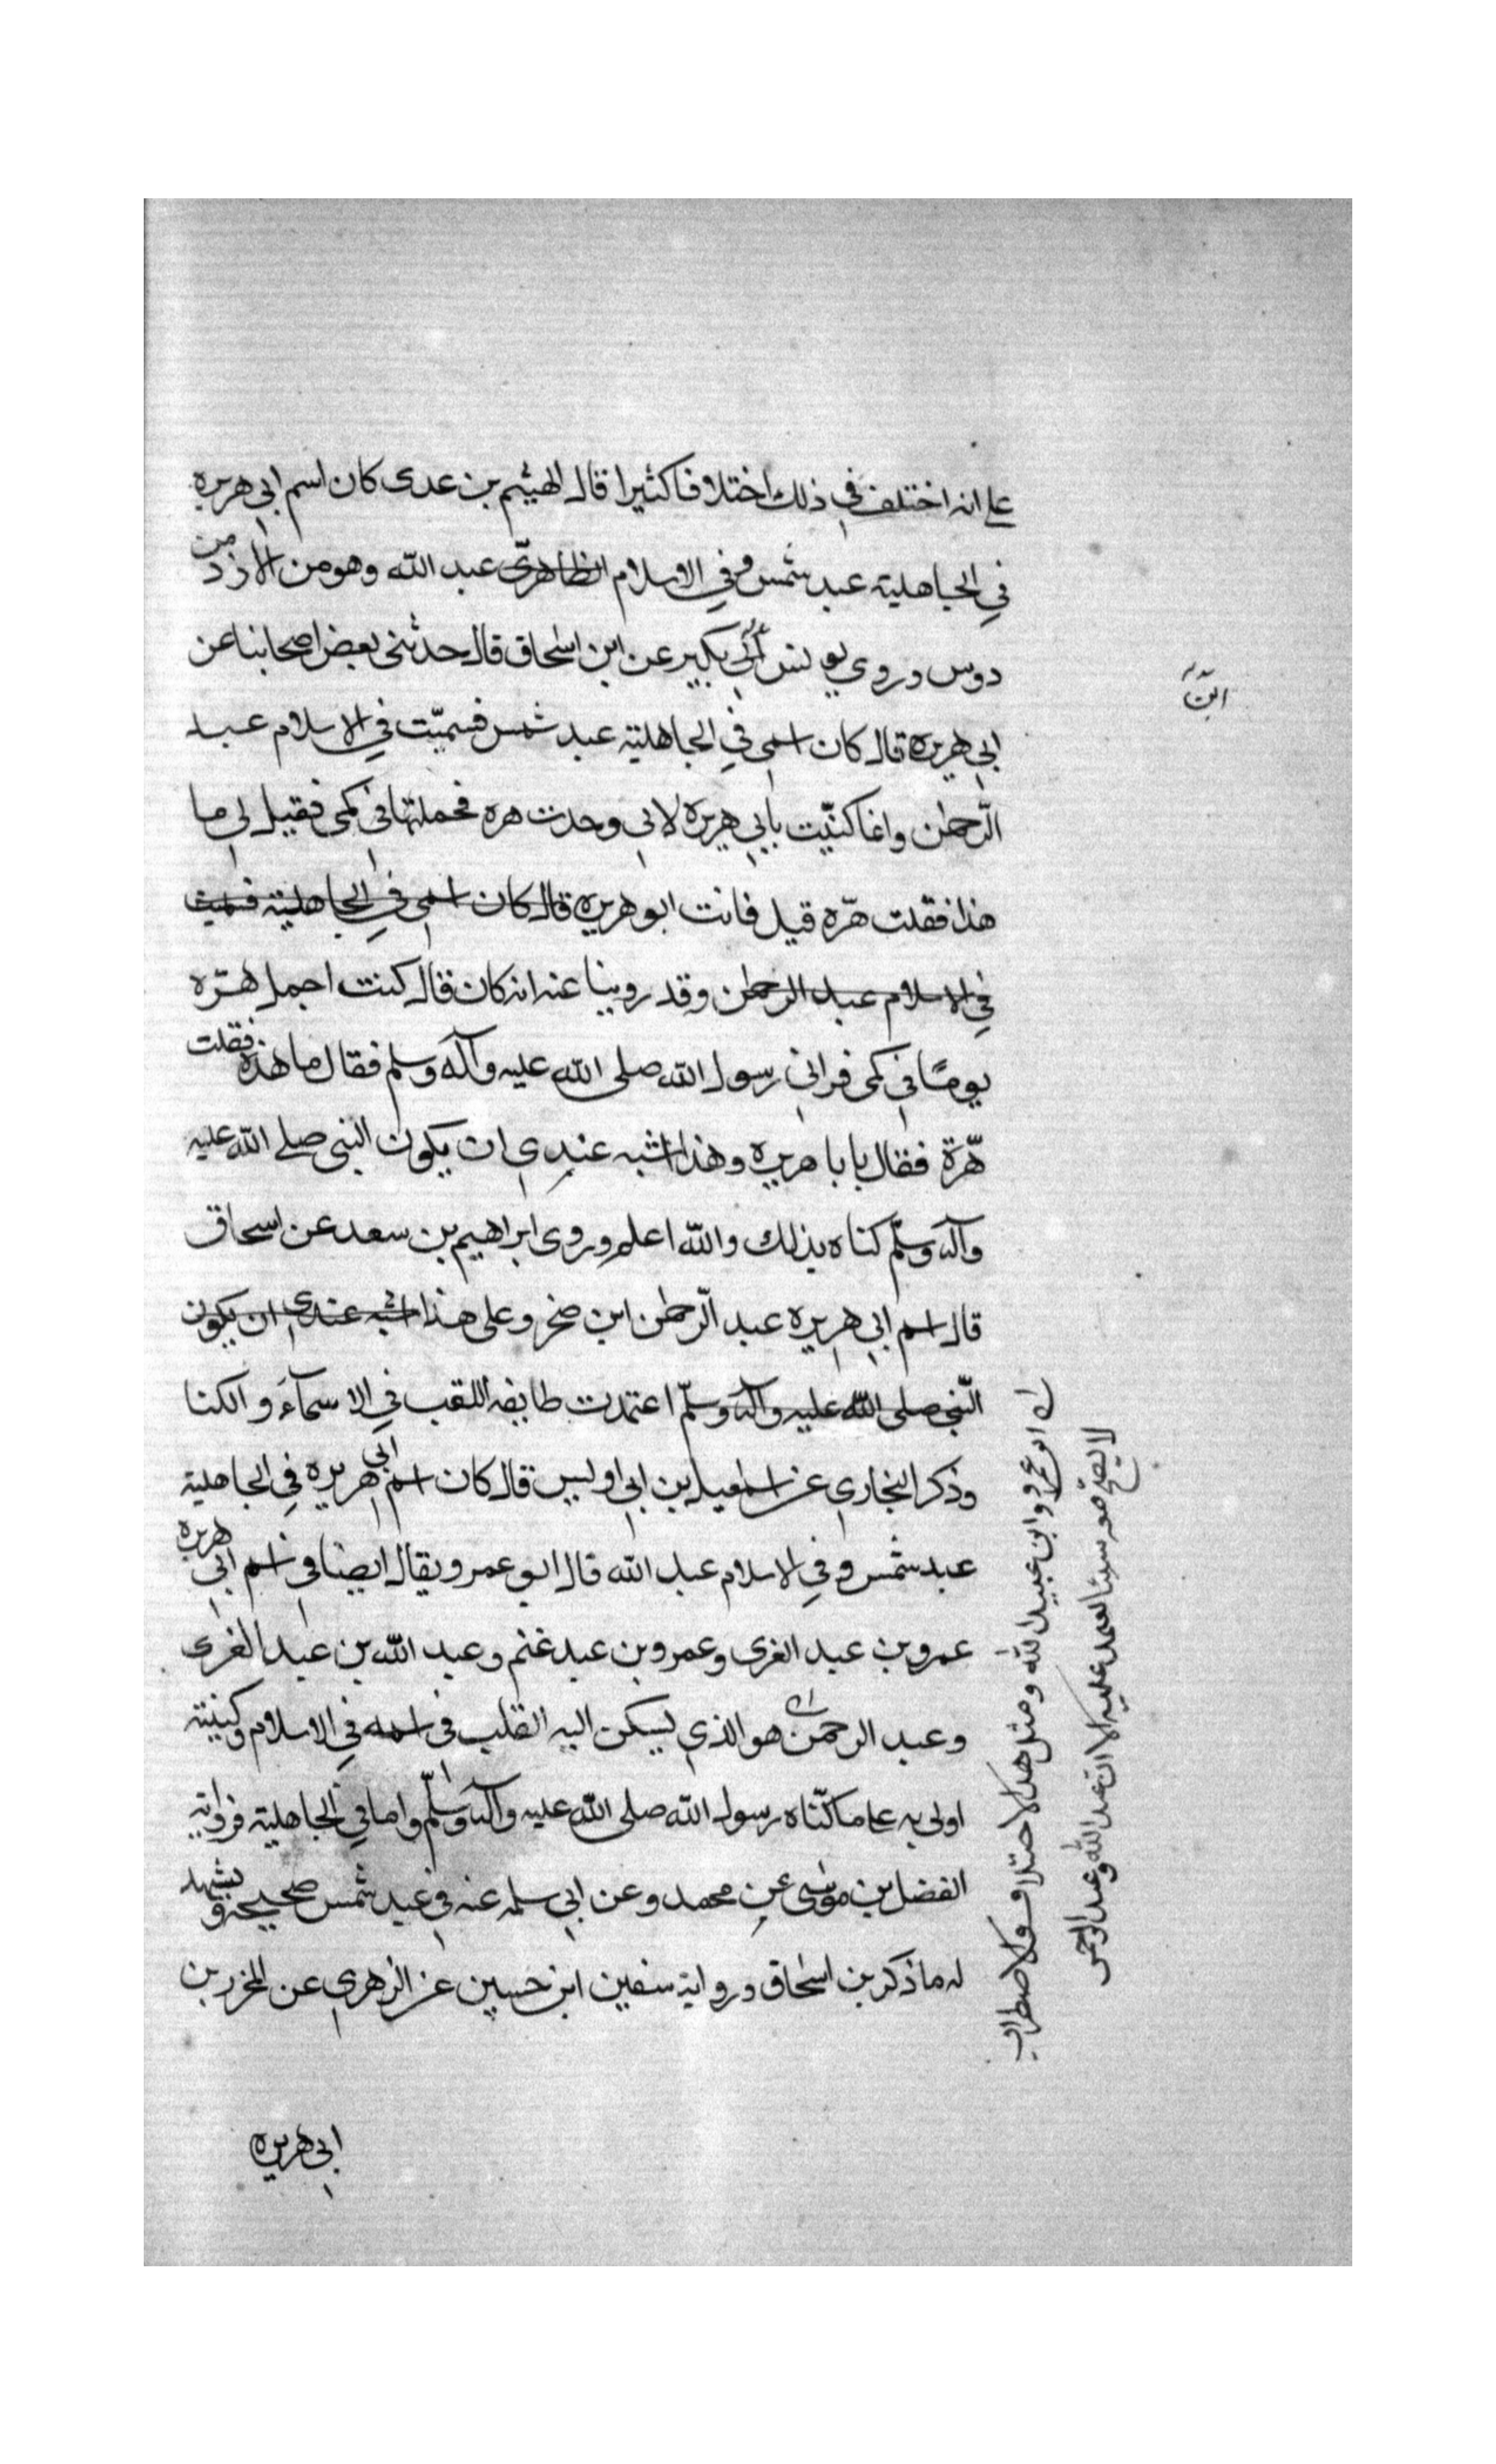 على انه اختلف في ذلك اختلافا كثيرا قال الهيثم بن عدى كان اسم ابي هريره
في الجاهلية عبد شمس وفي الاسلام الظاهرى عبد الله وهو من الازد من
دوس وروي يونس بكير عن ابن اسحاق قال حدثنى بعض اصحابنا عن
ابن
ابي هريره قال كان اسمى في الجاهلية عبد شمس فسميّت في الاسلام عبد
الرّحمن وانما كنيّت بابي هريره لانى وجدت هره فحملتها في كمى فقيل لي ما
هذا فقلت هرّه قيل فانت ابو هريره قال كان اسمى في الجاهلية فسميت
في الاسلام عبد الرحمن وقد روينا عنه انه كان قال كنت احمل هرّه
يومًا في كمى فرانى رسول الله صلى الله عليه وآله وسلم فقال ما هذه فقلت
هرّة فقال يا با هريره وهذا اشبه عندي ان يكون النبى صلى الله عليه
وآله وسلّم كناه بذلك والله اعلم وروى ابراهيم بن سعد عن اسحاق
قال اسم ابي هريره عبد الرّحمن ابن صخر وعلى هذا اشبه عندي ان يكون
النّبى صلى الله عليه وآله وسلّم اعتمدت طايفه اللقب في الاسمآء والكنا
وذكر البخاري عن اسمعيل بن ابى اويس قال كان اسم ابى هريره في الجاهلية
عبد شمس وفي الاسلام عبد الله قال ابو عمر ويقال ايضا في اسم ابي هريره
عمرو بن عبد الغرى وعمرو بن عبد غنم وعبد الله بن عبد الغرى
وعبد الرحمن هو الذي يسكن اليه القلب في اسمه في الاسلام وكنيته
اولى به على ما كنّاه رسول الله صلى الله عليه وآله وسلّم واما في الجاهلية فرواية
الفضل بن موسى عن محمد وعن ابي سلمه عنه في عبد شمس صحيحه ويشهد
له ما ذكر بن اسحاق ورواية سفين ابن حسين عن الزهري عن المخرر بن
ابى هريره
ابو عمرو وابن عبيد الله ومثل هذا الاختلاف والاضطراب
لا يصح معه شيئا يعتمد عليه الا ان عبد الله وعبد الرحمن